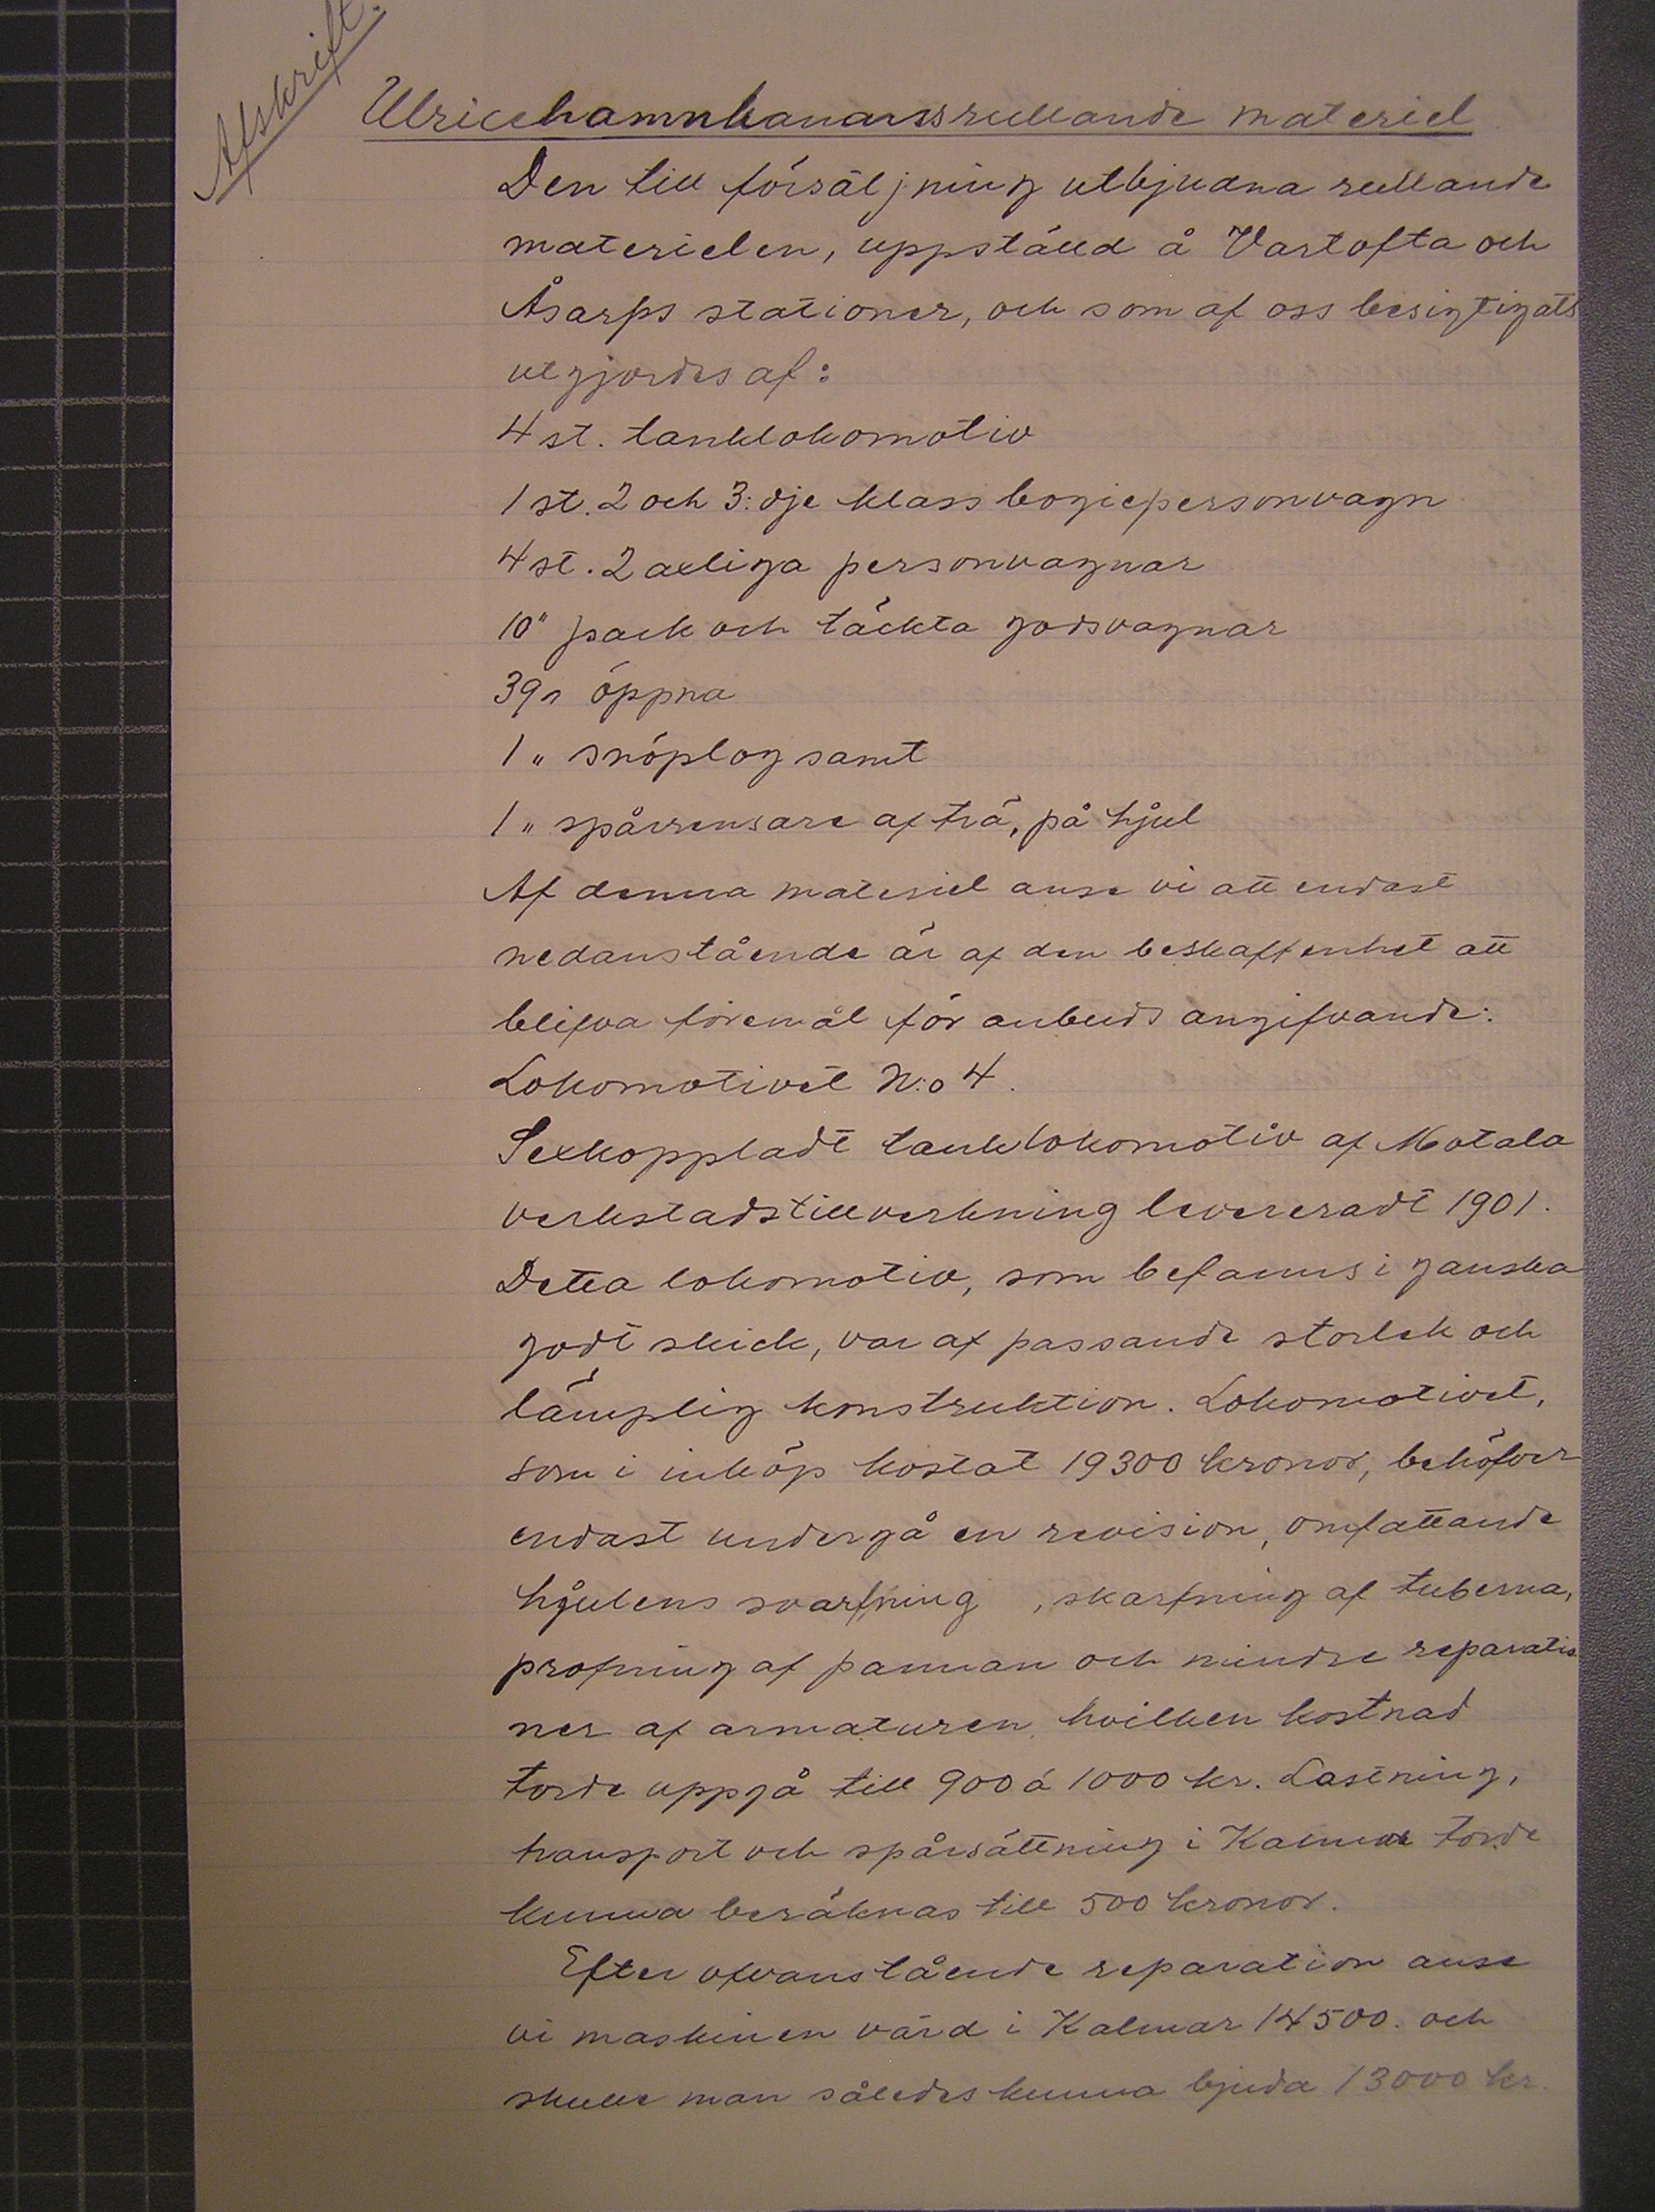 Afskrift.
Ulricehamnbanans rullande materiel
Den till försäljning utbjudna rullande
materielen, uppställd å Vartofta och
Åsarps stationer, och som af oss besigtigats
utgjordes af:
4 st. tanklokomotiv
1 st. 2 och 3:dje klass bogiepersonvagn
4 st. 2 axliga personvagnar
10 " pack och täckta godsvagnar
39 " öppna
1 " snöplog samt
1 " spårrensare af trä, på hjul
Af denna materiel anse vi att endast
nedanstående är af den beskaffenhet att
blifva föremål för anbuds angifvande:
Lokomotivet N:o 4.
Sexkoppladt tanklokomotiv af Motala
verkstads tillverkning levereradt 1901.
Detta lokomotiv, som befanns i ganska
godt skick, var af passande storlek och
lämplig konstruktion. Lokomotivet,
som i inköp kostat 19300 kronor, behöfver
endast undergå en revision, omfattande
hjulens svarfning , skarfning af tuberna,
profning af pannan och mindre reparatio
ner af armaturen, hvilken kostnad
torde uppgå till 900 á 1000 kr. Lastning,
transport och spårsättning i Kalmar torde
kunna beräknas till 500 kronor.
Efter ofvanstående reparation anse
vi maskinen värd i Kalmar 14500. och
skulle man således kunna bjuda 13000 kr.